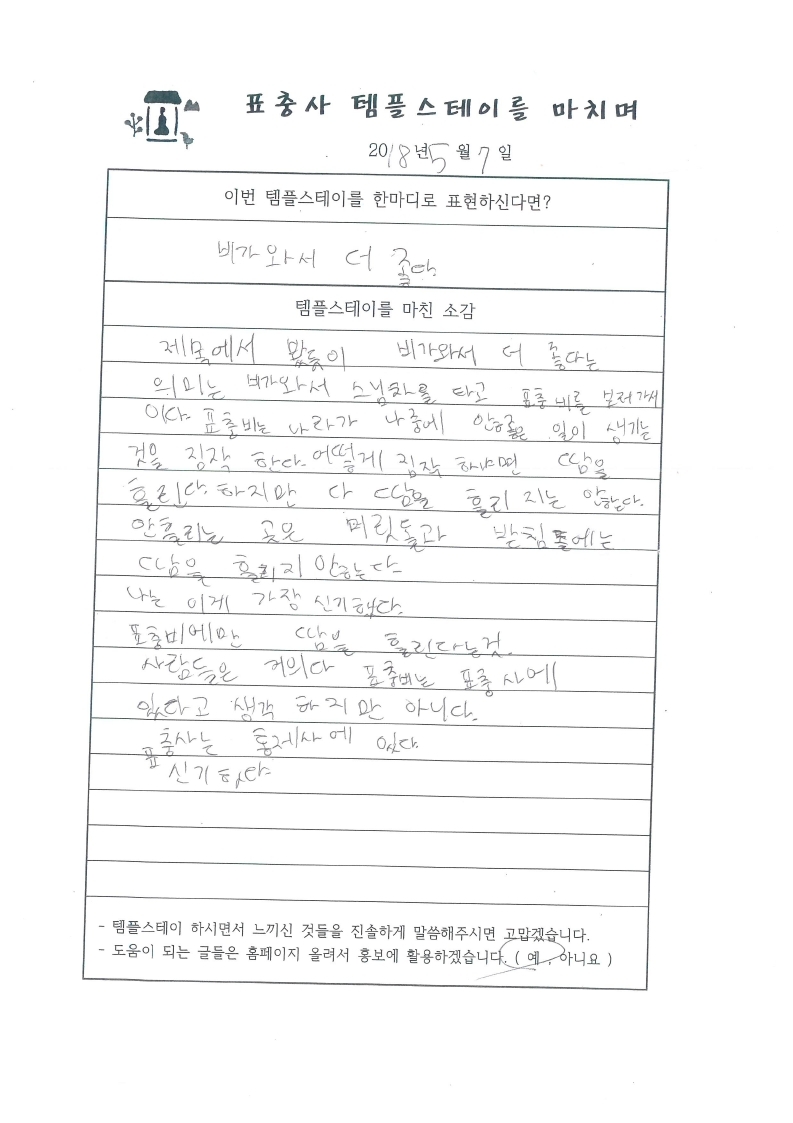 표충사 템플스테이를 마치며
2018년 5월 7일
이번 템플스테이를 한마디로 표현하신다면?
비가와서 더 좋다
템플스테이를 마친 소감
제목에서 봤듯이 비가와서 더 좋다는
의미는 비가와서 스님차를 타고 표충비를 보러가서
이다. 표충비는 나라가 나중에 안좋은 일이 생기는
것을 짐작 한다. 어떻게 짐작 하냐면 땀을
흘린다. 하지만 다 땀을 흘리지는 안는다.
안흘리는 곳은 머릿돌과 받침돌에는
땀을 흘리지 안하는다
나는 이게 가장 신기했다.
표충비에만 땀을 흘린다는것.
사람들은 거의다 표충비는 표충사에
있다고 생각 하지만 아니다.
표충사는 홍제사에 있다.
신기하다
- 템플스테이 하시면서 느끼신 것들을 진솔하게 말씀해주시면 고맙겠습니다.
- 도움이 되는 글들은 홈페이지 올려서 홍보에 활용하겠습니다. ( 예 , 아니요 )